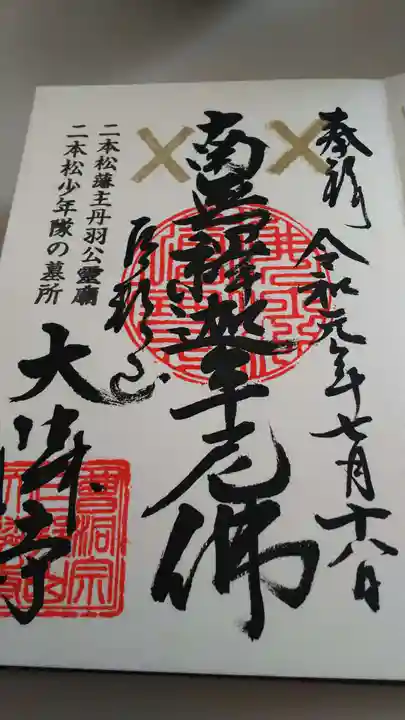 奉拝 令和元年七月十八日
南無釋迦牟尼佛
巨邦山
二本松藩主丹羽公霊廟
二本松少年隊の墓所
大隣寺
曹洞宗